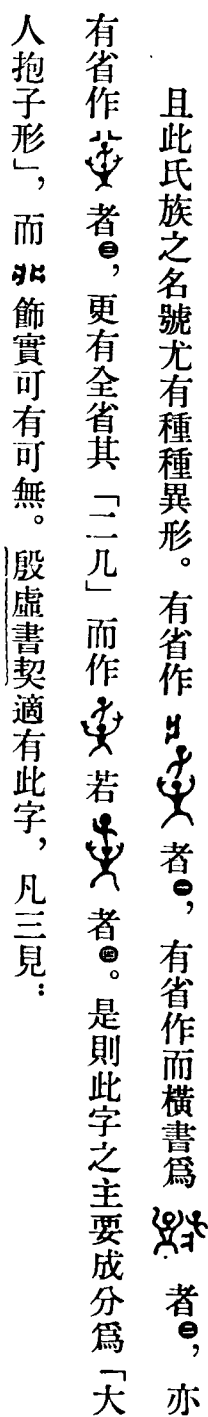 且此氏族之名號尤有種種異形。有省作者㊀,有省作而橫書爲者㊁,亦
有省作者㊂,更有全省其「二几」而作若者㊃。是則此字之主要成分爲「大
人抱子形」,而飾實可有可無。殷虛書契適有此字,凡三見: